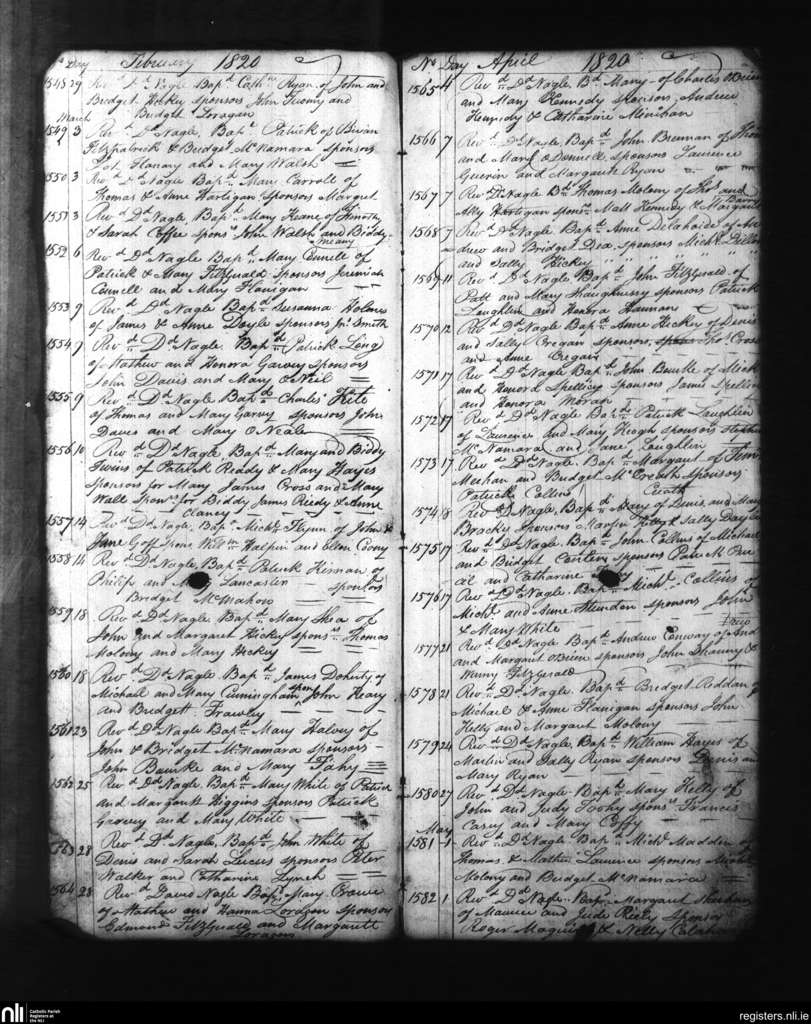 No Day February 1820
1548 29 Revd Dd Nagle Bapd Cathn Ryan of John and
Bridget Hickey sponsors John Twomy and
Bridget Loragan
March
1549 3 Revd Dd Nagle, Bapd Patrick of Brien
Fitzpatrick & Bridget McNamara sponsors
Pat Flanary and Mary Walsh
1550 3 Revd Dd Nagle Bapd Mary Carroll of
Thomas & Anne Hartigan Sponsors Margret
1551 3 Revd Dd Nagle, Bapd Mary Keane of Timothy
& Sarah Coffee sponrs John Walsh and Biddy
Meany
1552 6 Revd Dd Nagle Bapd Mary Connell of
Patrick & Mary Fitzgerald Sponsors Jeremiah
Connell and Mary Flanigan
1553 9 Revd Dd Nagle Bapd Susanna Holmes
of James & Anne Doyle sponsors Jno Smith
1554 9 Revd Dd Nagle Bapd Patrick Long
of Mathew and Honora Garvey Sponsors
John Davis and Mary O Neil
1555 9 Revd Dd Nagle Bapd Charles
of Thomas and Mary Garvy sponsors John
Daves and Mary O Neale
1556 10 Revd Dd Nagle Bapd Mary and Biddy
Twins of Patrick Reddy & Mary Hayes
Sponsors for Mary James Cross and Mary
Wall Sponrs for Biddy James Riedy & Anne
Clancy
1557 14 Revd Dd Nagle, Bapd Michl Flynn of John &
Jane Goff Spons Willm Halpin and Ellen Coony
1558 14 Revd Dd Nagle, Bapd Patrick Kirnan of
Philip and Lancaster sponsors
Bridget McMahon
1559 18 Revd Dd Nagle, Bapd Mary Shea of
John and Margaret Hickey sponrs Thomas
Molony and Mary Hickey
1560 18 Revd Dd Nagle Bapd James Doherty of
Michael and Mary Cuningham spons John Keary
and Bridgett Frawley
1561 23 Revd Dd Nagle Bapd Mary Halvey of
John & Bridget McNamara sponsors
John Bourke and Mary Fahy
1562 25 Revd Dd Nagle, Bapd Mary White of Patrick
and Margarett Higgins sponsors Patrick
Garvey and Mary White
1563 28 Revd Dd Nagle, Bapd John White of
Denis and Sarah Lucus sponsors Peter
Walker and Catharine Lynch
1564 28 Revd David Nagle Bapd Mary Crowe
of Mathew and Hanna Loragan Sponsors
Edmond Fitzgerald and Margarett
Loragan
No Day April 1820
1565 4 Revd Dd Nagle Bd Mary of Charles OBrien
and Mary Kennedy sponsors, Andrew
Kennedy & Catharine Menihan
1566 7 Revd Dd Nagle, Bapd John Brennan of Thos
and Mary ODonnell, sponsors Laurence
Guerin and Margaret Ryan
1567 7 Revd Dd Nagle Bd Thomas Molony of Thos and
Ally Hartigan sponrs Matt Kennedy & Margaret
1568 7 Revd Dd Nagle Bapd Anne Delahoide of An
drew and Bridget Dea, sponsors Michl
and Sally Hickey
1569 11 Revd Dd Nagle Bapd John Fitzgerald of
Patt and Mary Shaughnessy sponsors Patrick
Laughlin and Honora Hannon
1570 12 Revd Dd Nagle Bapd Anne Hickey of Denis
and Sally Cregan sponsors, Thos Cross
and Anne Cregan
1571 17 Revd Dd Nagle Bapd John Bourke of Mick
and Honora Skelling sponsors James
and Honora Moran
1572 17 Revd Dd Nagle Bapd Patrick Laughlin
of Laurence and Mary Keogh sponsors Stephen
McNamara and Jane Laughlin
1573 17 Revd Dd Nagle, Bapd Margaret of
Meehan and Bridget McCreath sponsors
Patrick Collins Creath
1574 18 Revd Dd Nagle, Bapd Mary of Denis and Mary
Bracky Sponsors Martin Kelly & Sally Day
1575 17 Revd Dd Nagle, Bapd John Collins of Michael
and Bridget sponsors
and Catharine
1576 17 Revd Dd Nagle, Bapd Michl Collins of
Michl and Anne sponsors John
& Mary White
1577 21 Revd Dd Nagle Bapd Andrew Conway of And
and Margaret OBrien sponsors John &
Winny Fitzgerald
1578 21 Revd Dd Nagle, Bapd Bridget Reddan of
Michael & Anne Flanigan sponsors John
Kelly and Margaret Molony
1579 24 Revd Dd Nagle, Bapd William Hayes of
Martin and Sally Ryan sponsors Dennis and
Mary Ryan
1580 27 Revd Dd Nagle Bapd Mary Kelly of
John and Judy Toohy sponrs Francis
Casey and Mary Coffy
May
1581 1 Revd Dd Nagle Bapd Michl Madden of
Thomas & Laurence sponsors
Molony and Bridget McNamara
1582 1 Revd Dd Nagle Bapd Margaret
of Maurice and Jude Riely sponsors
Roger & Nelly
nli
Catholic Parish
Registers at
the NLI
registers.nli.ie